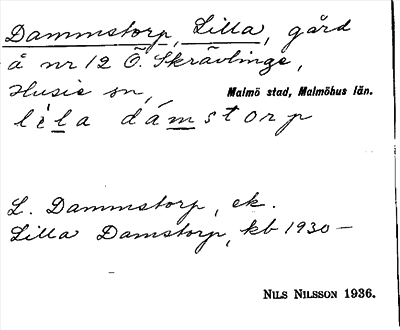 Dammstorp, Lilla, gård
å nr 12 Ö. Skrävlinge,
Husie sn, Malmö stad, Malmöhus län.
lìla dámstorp
L. Dammstorp, ek.
Lilla Damstorp, kb 1930 –
NILS NILSSON 1936.